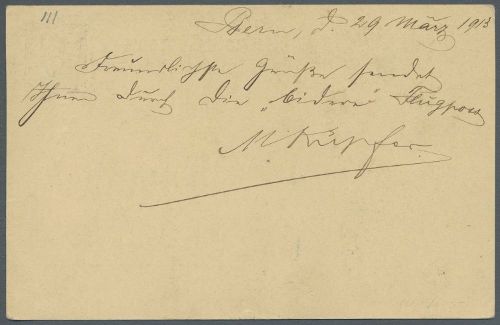 111
Bern, d. 29 März 1913
Freundlichste Grüße sendet
Ihnen durch die „bider" Flugpost
M. Küpfer.